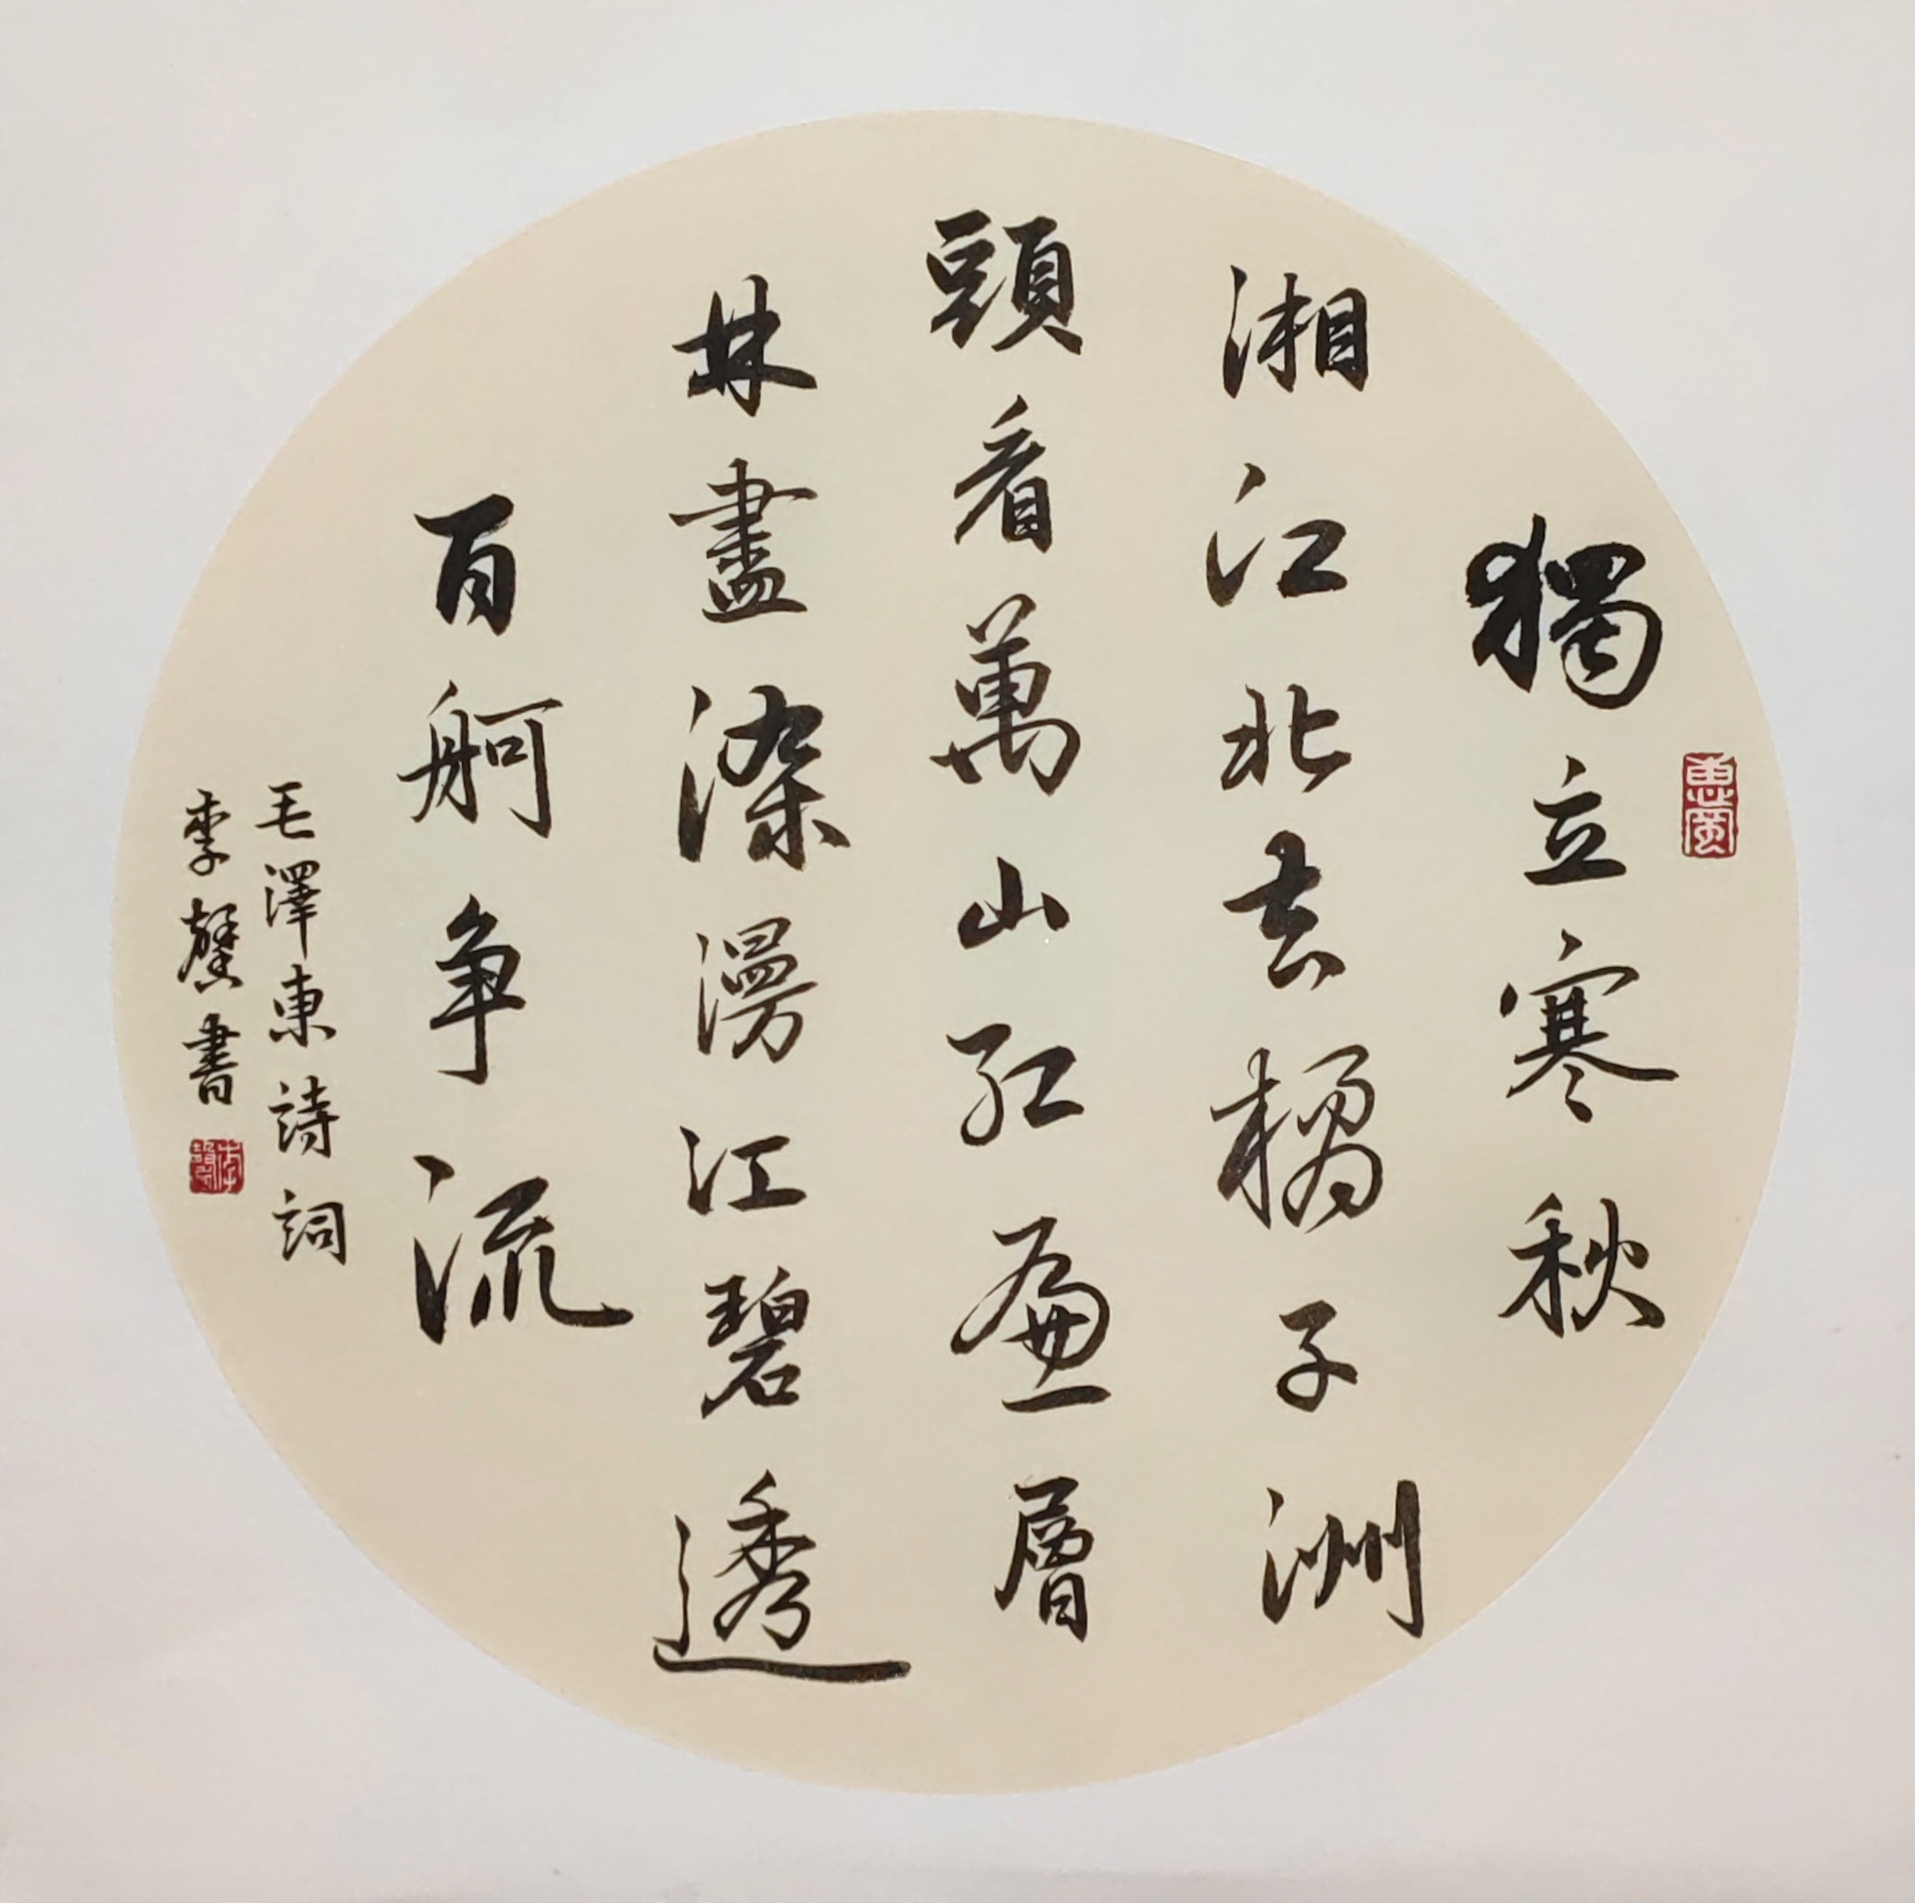 獨立寒秋
湘江北去橘子洲
頭看萬山紅遍層
林盡染漫江碧透
百舸争流
毛澤東詩詞
李馨書
惠風